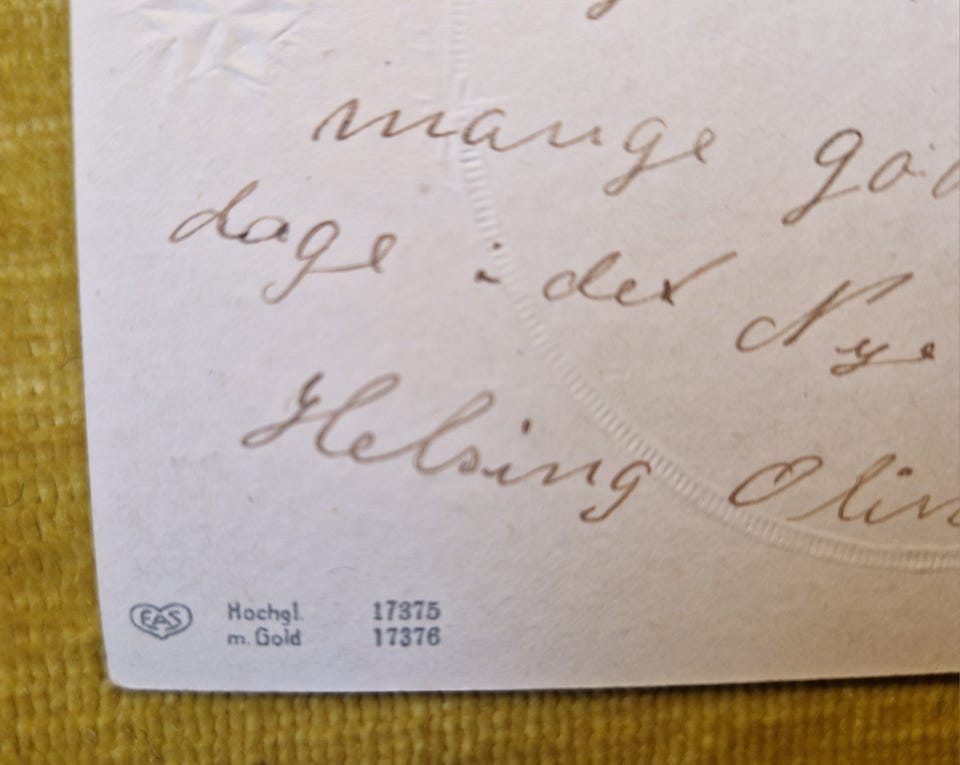 mange go
dage i det Nye
Helsing Olin
EAS
Hochgl. 17375
m. Gold 17376